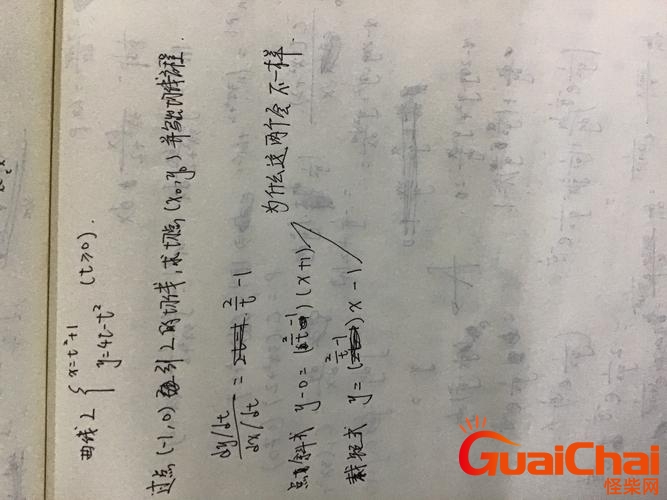 曲线L { x=t²+1
y=4t-t² (t≥0).
过点(-1,0)引L的切线,求切点(x₀,y₀)并写出切线方程.
dy/dt / dx/dt = 2/t - 1
点斜式 y-0=(2/t-1)(x+1)
截距式 y=(2/t-1)x-1
为什么这两个会不一样
GuaiChai
怪柴网